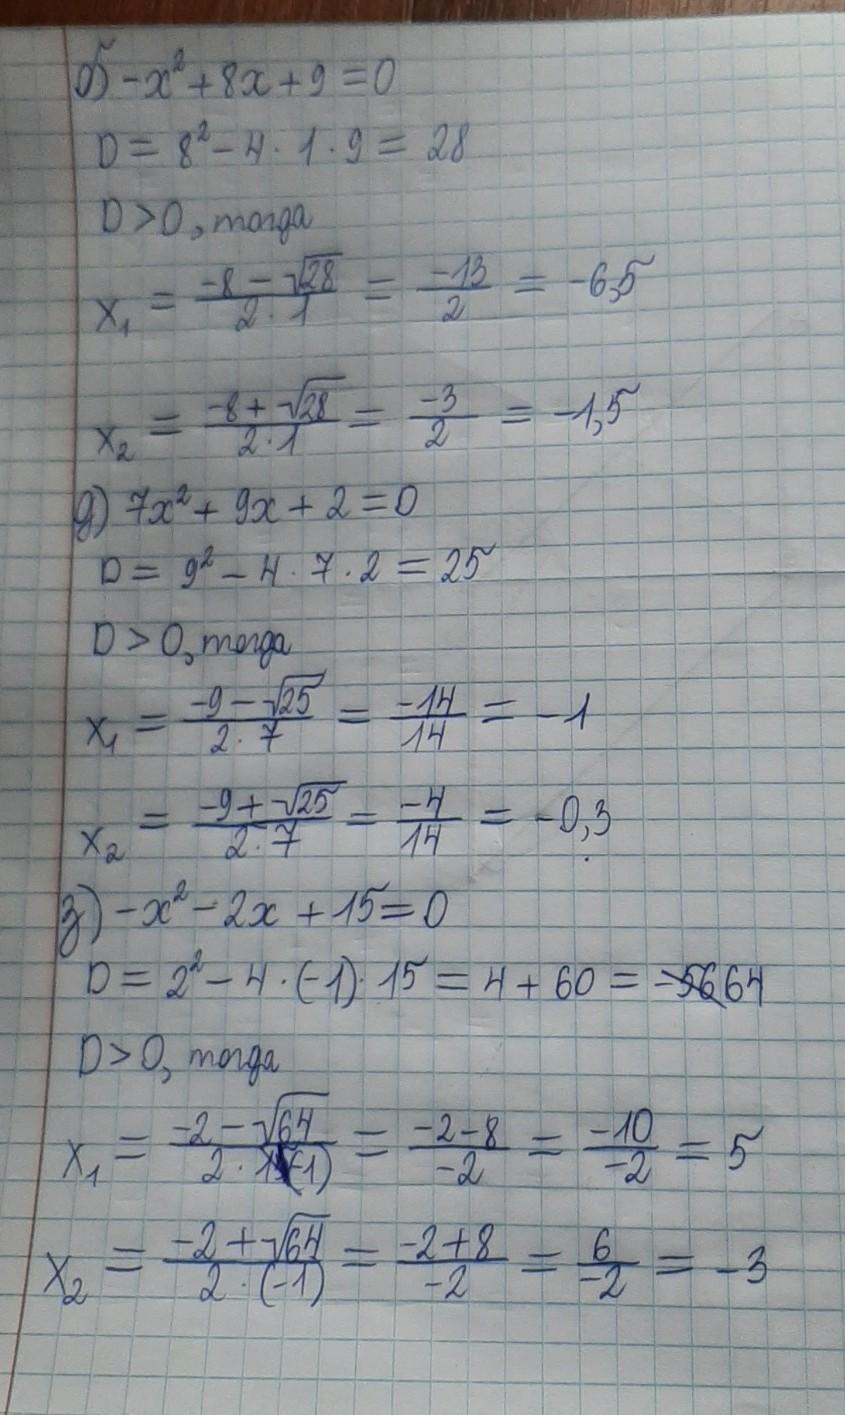 б) -x² + 8x + 9 = 0
D = 8² - 4 · 1 · 9 = 28
D > 0, тогда
x₁ = (-8 - √28)/(2 · 1) = -13/2 = -6,5
x₂ = (-8 + √28)/(2 · 1) = -3/2 = -1,5
д) 7x² + 9x + 2 = 0
D = 9² - 4 · 7 · 2 = 25
D > 0, тогда
x₁ = (-9 - √25)/(2 · 7) = -14/14 = -1
x₂ = (-9 + √25)/(2 · 7) = -4/14 = -0,3
з) -x² - 2x + 15 = 0
D = 2² - 4 · (-1) · 15 = 4 + 60 = 64
D > 0, тогда
x₁ = (-2 - √64)/(2 · (-1)) = (-2-8)/-2 = -10/-2 = 5
x₂ = (-2 + √64)/(2 · (-1)) = (-2+8)/-2 = 6/-2 = -3